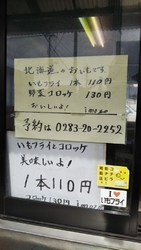 北海道のおいもです
いもフライ 1本 110円
野菜コロッケ 130円
おいしいよ! imazo
予約は 0283-20-2252
いもフライとコロッケ
美味しいよ!
1本110円
I ♥
いもフライ